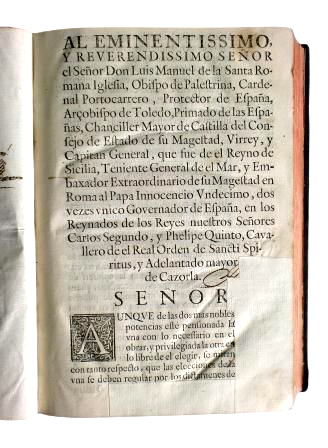 AL EMINENTISSIMO,
Y REVERENDISSIMO SEÑOR
el Señor Don Luis Manuel de la Santa Ro-
mana Iglesia, Obispo de Palestrina, Carde-
nal Portocarrero, Protector de España,
Arçobispo de Toledo, Primado de las Espa-
ñas, Chanciller Mayor de Castilla del Con-
sejo de Estado de su Magestad, Virrey, y
Capitan General, que fue de el Reyno de
Sicilia, Teniente General de el Mar, y Em-
baxador Extraordinario de su Magestad en
Roma al Papa Innocencio Vndecimo, dos
vezes vnico Governador de España, en los
Reynados de los Reyes nuestros Señores
Carlos Segundo, y Phelipe Quinto, Cava-
llero de el Real Orden de Sancti Spi-
ritus, y Adelantado mayor
de Cazorla.
SEÑOR
AUNQVE de las dos mas nobles
potencias esté pensionada la
vna con lo necessario en el
obrar, y privilegiada la otra en
lo libre de el elegir, se miran
con tanto respecto, que las elecciones de la
vna se deben regular por los dictamenes de